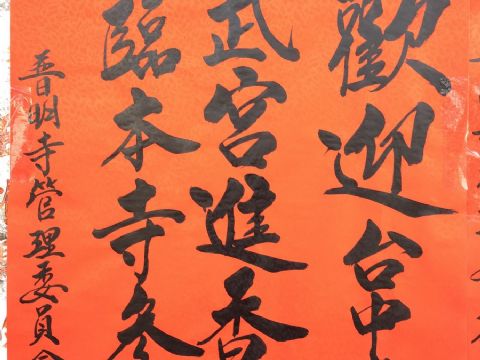 歡迎台中
武宮進香
臨本寺參
普明寺管理委員會